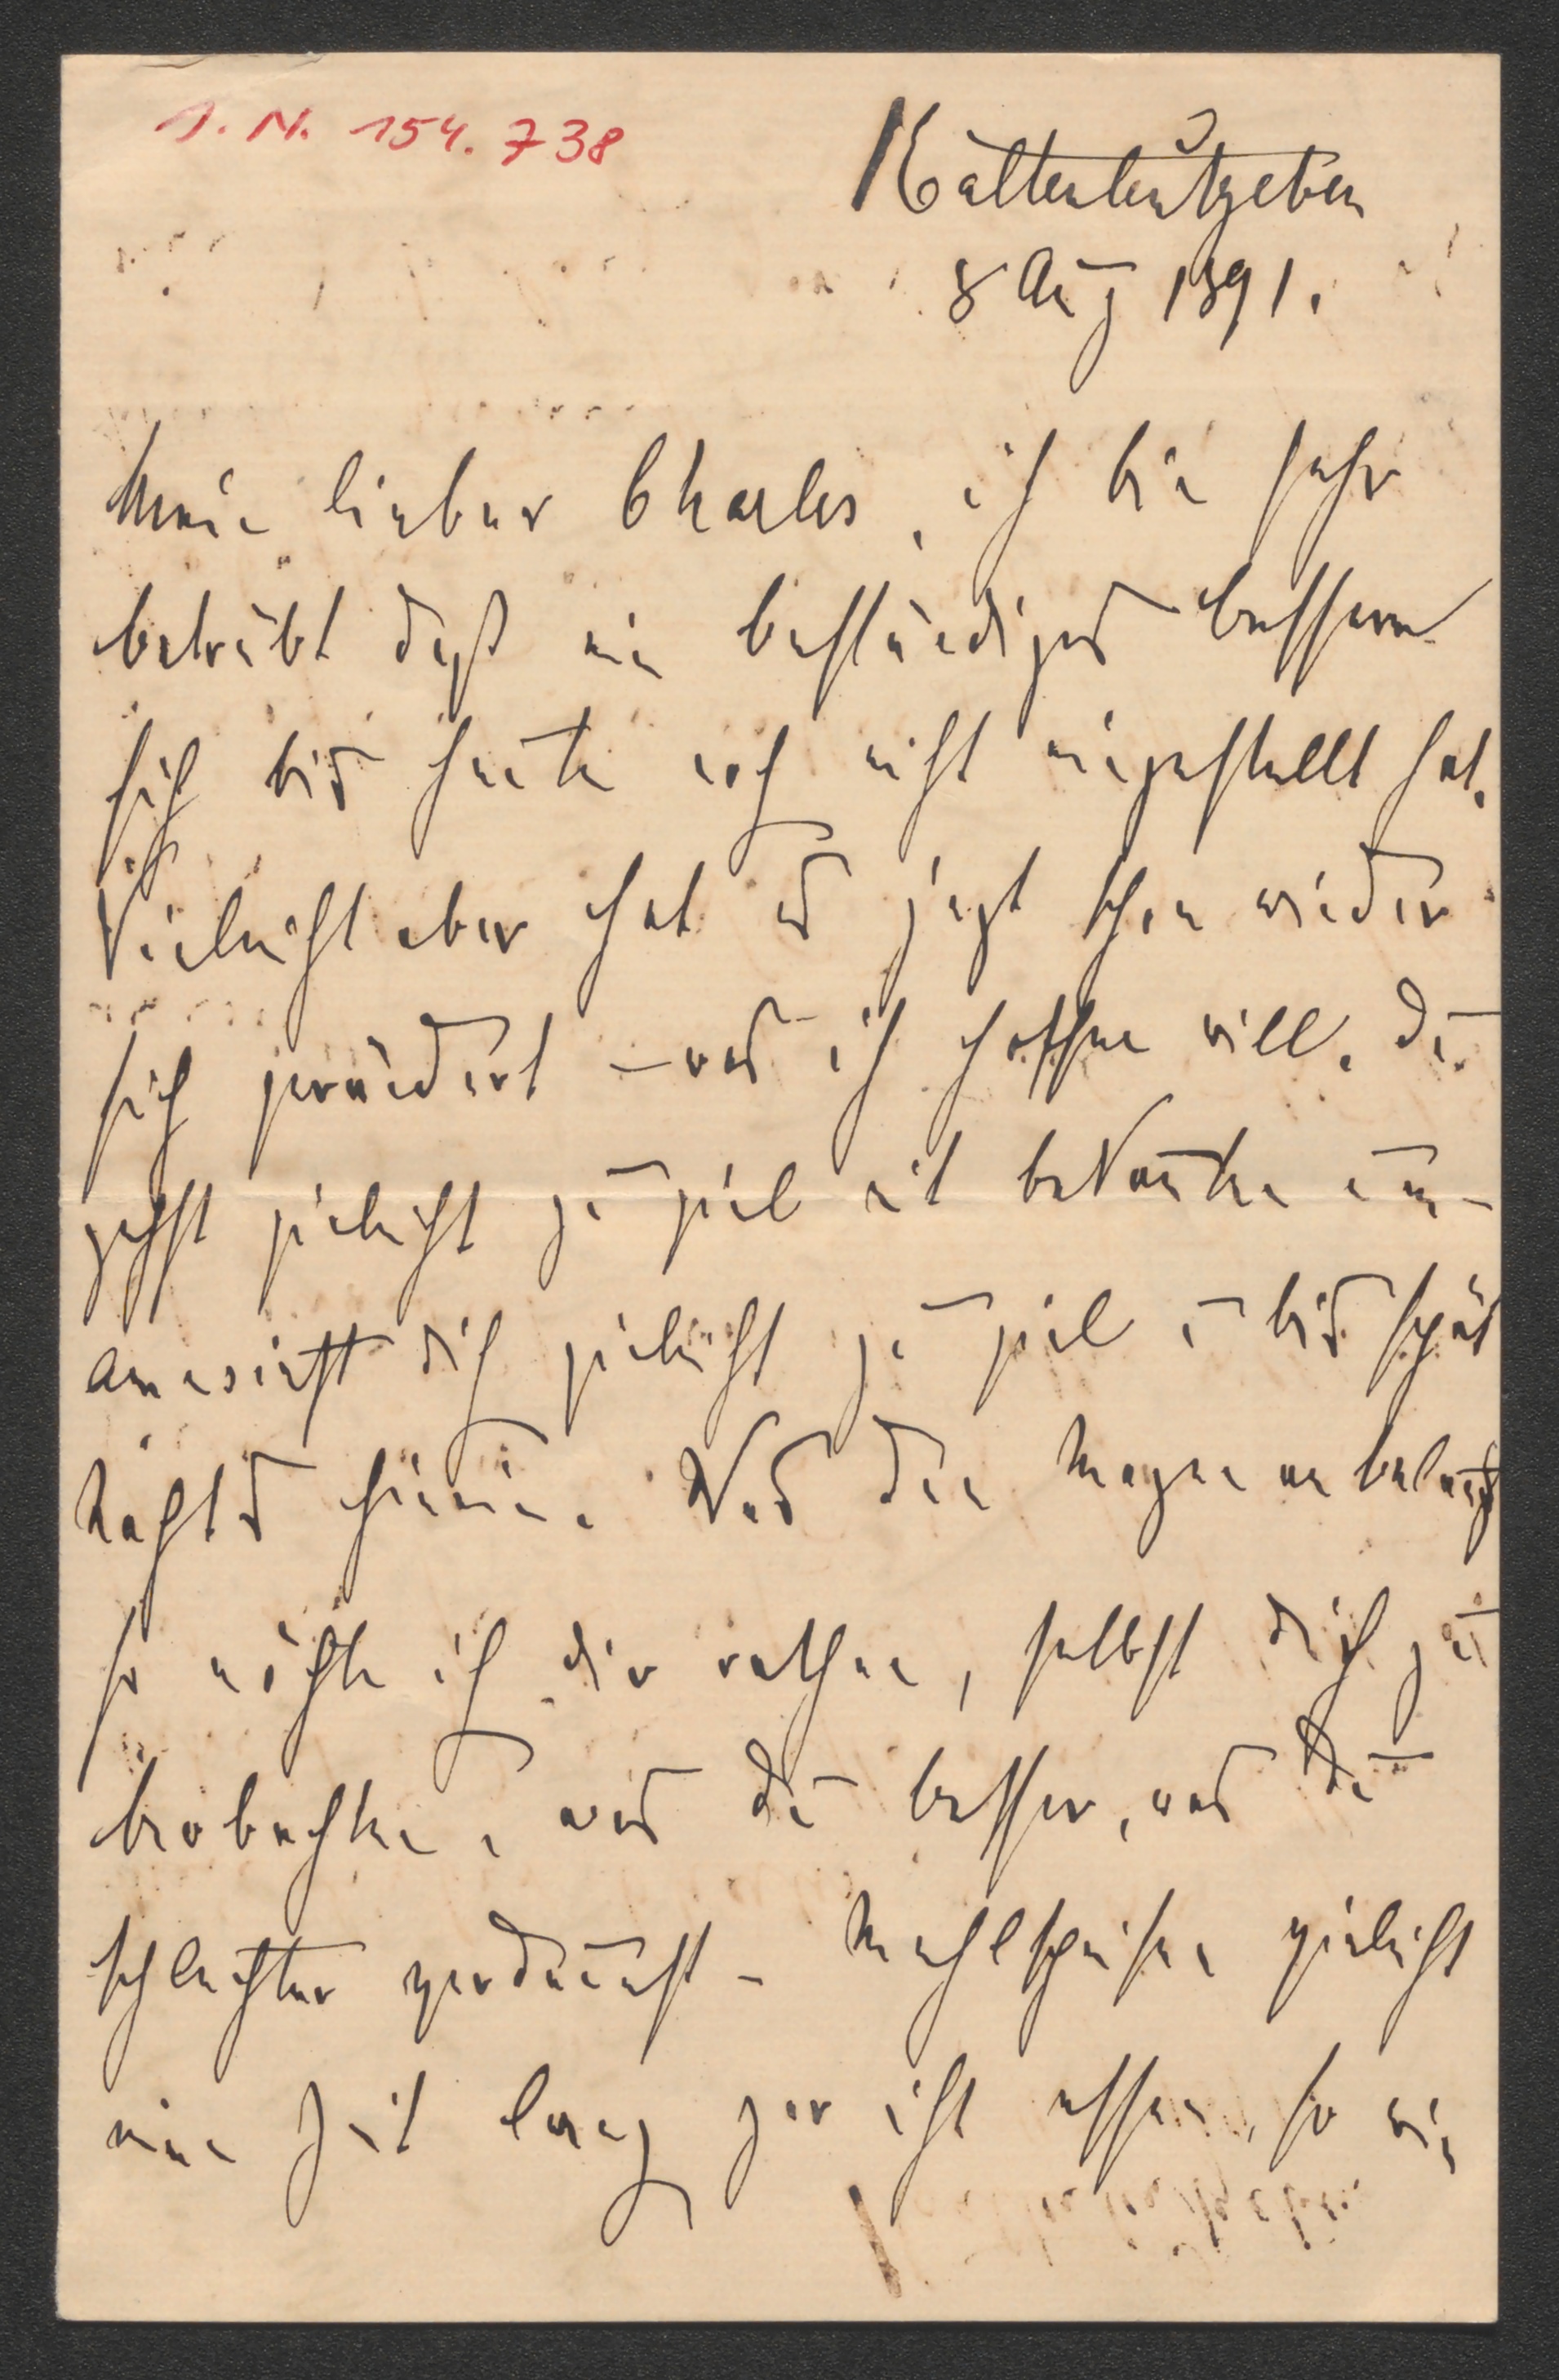 I. N. 154.738
Kaltenleutgeben
8 Aug 1891.
Mein lieber Charles, ich bin sehr
betrübt daß ein beständiges bessern
sich bis heute noch nicht eingestellt hat.
Vieleicht aber hat es jezt schon wieder
sich geändert – was ich hoffen will. Du
gehst vieleicht zu viel mit Bekannten um –
amusirst dich vieleicht zu viel u bis spät
Nachts hinein. Was den Magen anbelangt
so möchte ich dir rathen, selbst dich zu
beobachten, was du besser, was Du
schlechter verdaust – Mehlspeisen vieleicht
eine Zeit lang gar nicht essen, so wie